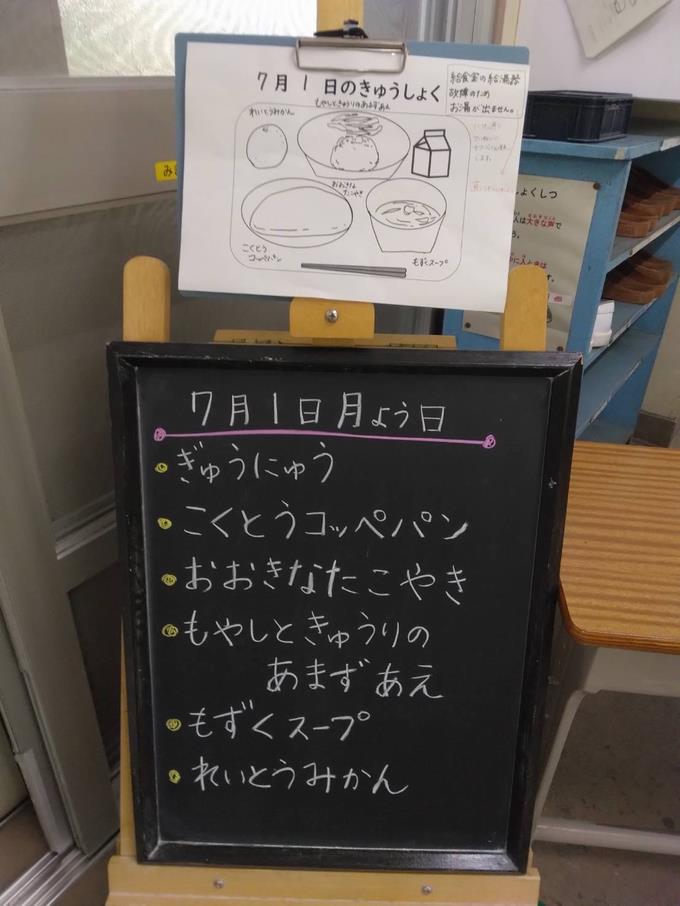 7月1日のきゅうしょく
給食室の給湯器
故障のため
お湯が出ません。
れいとうみかん
もやしときゅうりのあまずあえ
おおきな
たこやき
こくとう
コッペパン
もずくスープ
7月1日月よう日
ぎゅうにゅう
こくとうコッペパン
おおきなたこやき
もやしときゅうりの
あまずあえ
もずくスープ
れいとうみかん
み
大きな声で